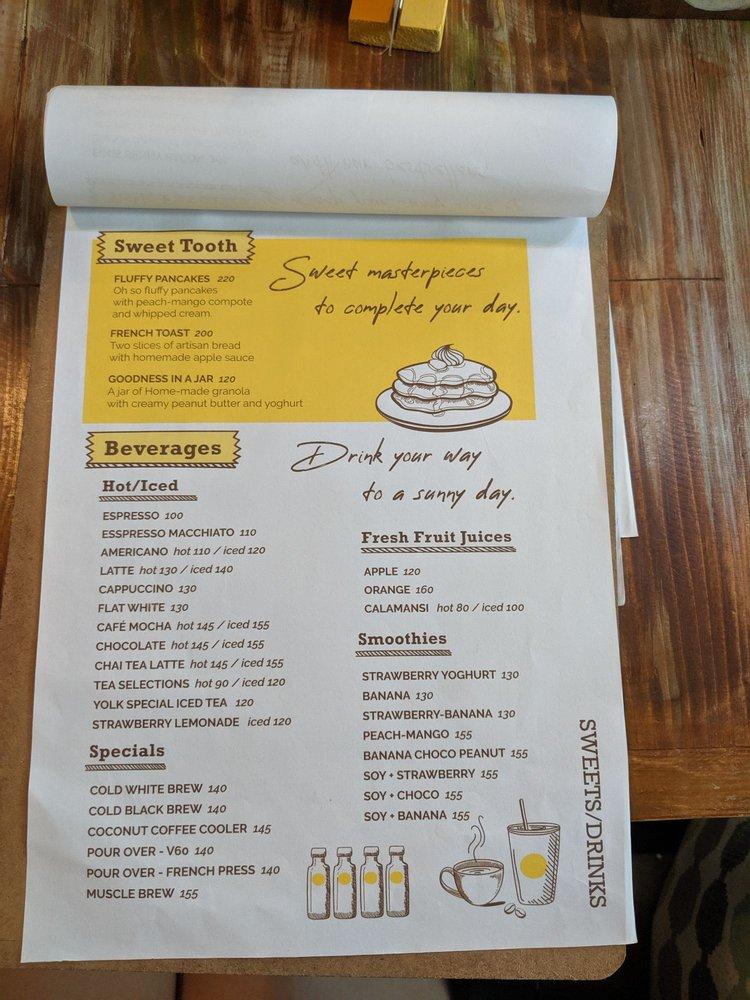 Sweet Tooth
FLUFFY PANCAKES 220
Oh so fluffy pancakes
with peach-mango compote
and whipped cream.
FRENCH TOAST 200
Two slices of artisan bread
with homemade apple sauce
GOODNESS IN A JAR 120
A jar of Home-made granola
with creamy peanut butter and yoghurt
Sweet masterpieces
to complete your day.
Beverages
Drink your way
to a sunny day.
Hot/Iced
ESPRESSO 100
ESSPRESSO MACCHIATO 110
AMERICANO hot 110 / iced 120
LATTE hot 130 / iced 140
CAPPUCCINO 130
FLAT WHITE 130
CAFÉ MOCHA hot 145 / iced 155
CHOCOLATE hot 145 / iced 155
CHAI TEA LATTE hot 145 / iced 155
TEA SELECTIONS hot 90 / iced 120
YOLK SPECIAL ICED TEA 120
STRAWBERRY LEMONADE iced 120
Specials
COLD WHITE BREW 140
COLD BLACK BREW 140
COCONUT COFFEE COOLER 145
POUR OVER - V60 140
POUR OVER - FRENCH PRESS 140
MUSCLE BREW 155
Fresh Fruit Juices
APPLE 120
ORANGE 160
CALAMANSI hot 80 / iced 100
Smoothies
STRAWBERRY YOGHURT 130
BANANA 130
STRAWBERRY-BANANA 130
PEACH-MANGO 155
BANANA CHOCO PEANUT 155
SOY + STRAWBERRY 155
SOY + CHOCO 155
SOY + BANANA 155
SWEETS/DRINKS